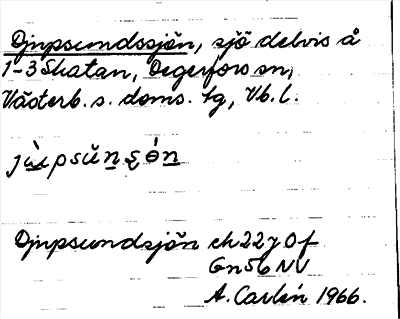 Djupsundssjön, sjö delvis å
1-3 Skatan, Degerfors sn,
Västerb. s. doms. tg, Vb. l.
jùpsŭnşón
Djupsundsjön ek 22 J 0 f
Gn 56 NV
A. Carlén 1966.